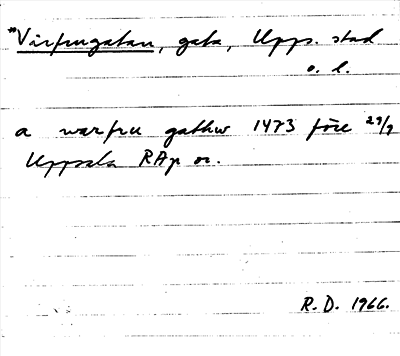 *Vårfrugatan, gata, Upps. stad
o. l.
a warfru gathw 1473 före 29/9
Uppsala RAp or.
R. D. 1966.